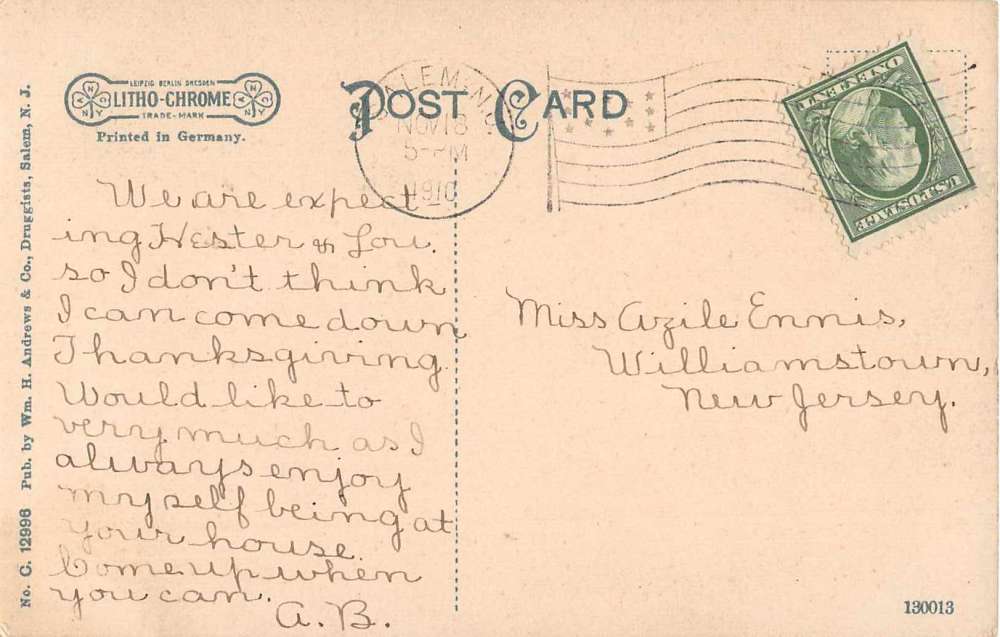 No. C. 12998 Pub. by Wm. H. Andrews & Co., Druggists, Salem, N. J.
LEIPZIG BERLIN DRESDEN
LITHO-CHROME
TRADE-MARK
Printed in Germany.
POST CARD
SALEM, N.J.
NOV 18
5-PM
1910
ONE CENT
U.S. POSTAGE
We are expect
ing Hester & Lou.
so I don't think
I can come down
Thanksgiving.
Would like to
very much as I
always enjoy
myself being at
your house.
Come up when
you can.
A. B.
Miss Azile Ennis,
Williamstown,
New Jersey.
130013